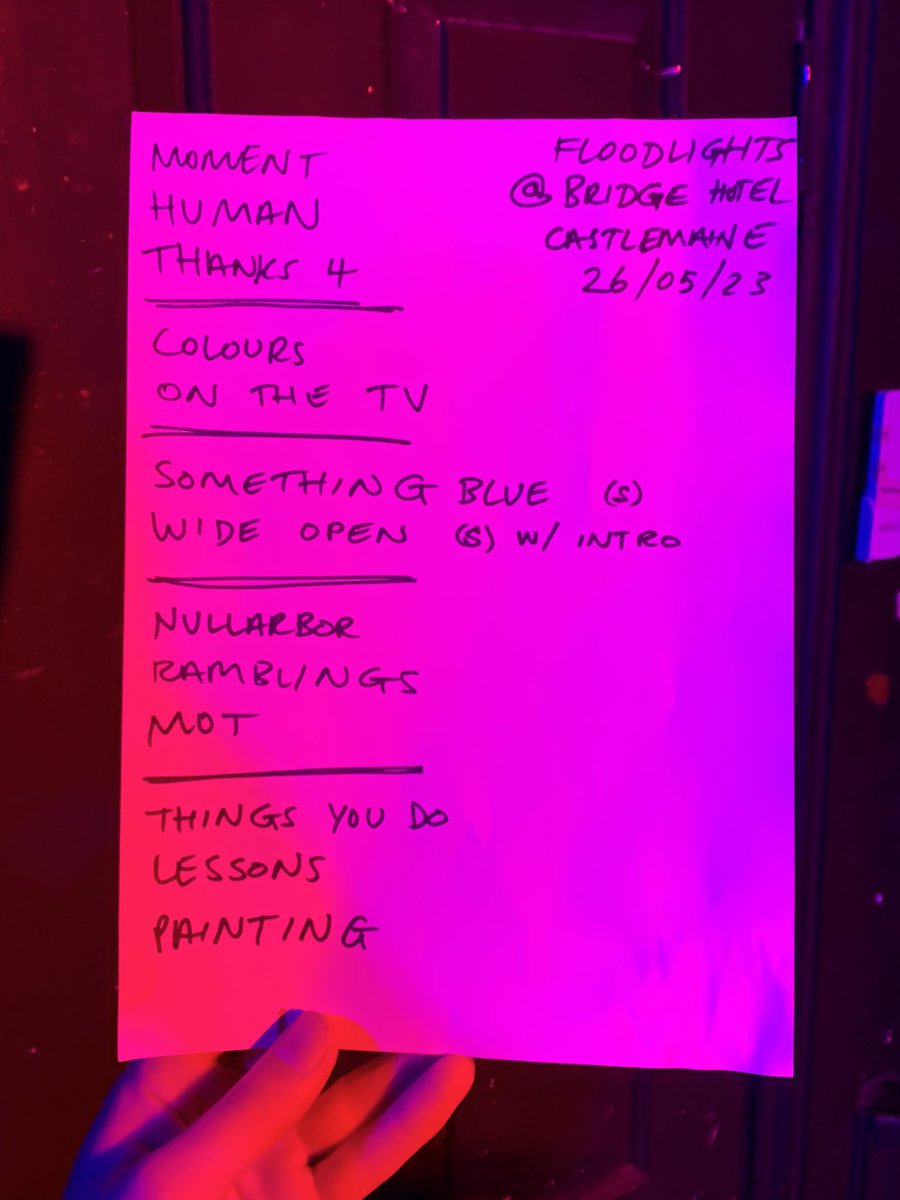 FLOODLIGHTS
@ BRIDGE HOTEL
CASTLEMAINE
26/05/23
MOMENT
HUMAN
THANKS 4
COLOURS
ON THE TV
SOMETHING BLUE (S)
WIDE OPEN (S) W/ INTRO
NULLARBOR
RAMBLINGS
MOT
THINGS YOU DO
LESSONS
PAINTING